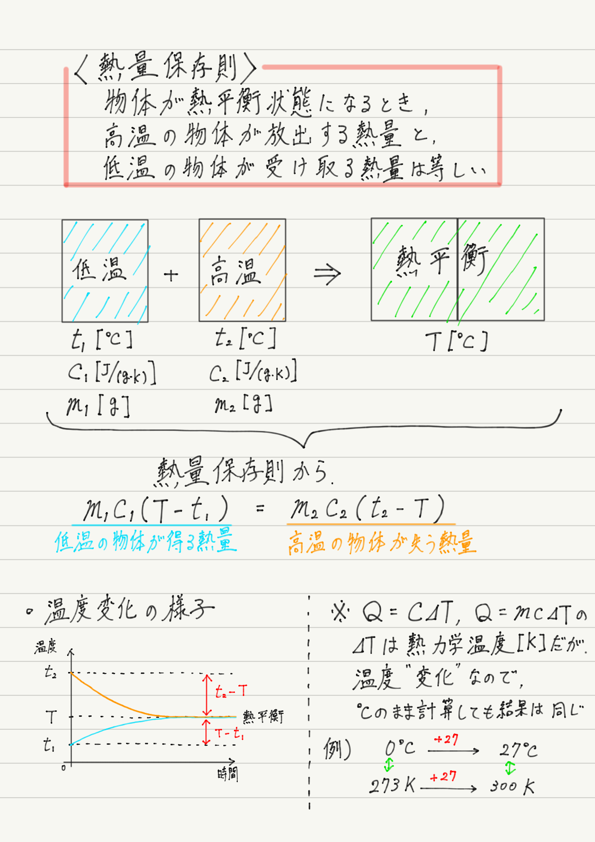 〈熱量保存則〉
物体が熱平衡状態になるとき,
高温の物体が放出する熱量と,
低温の物体が受け取る熱量は等しい
低温 + 高温 ⇒ 熱平衡
t₁[℃] t₂[℃] T[℃]
C₁[J/(g·K)] C₂[J/(g·K)]
m₁[g] m₂[g]
熱量保存則から.
m₁C₁(T-t₁) = m₂C₂(t₂-T)
低温の物体が得る熱量 高温の物体が失う熱量
○ 温度変化の様子
温度
t₂
t₂-T
T 熱平衡
T-t₁
t₁
0 時間
※ Q=CΔT, Q=mcΔTの
ΔTは熱力学温度[K]だが.
温度"変化"なので,
℃のまま計算しても結果は同じ
例) 0℃ +27 → 27℃
273K +27 → 300K